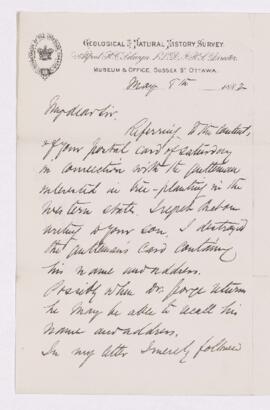 GEOLOGICAL & NATURAL HISTORY SURVEY.
Alfred R. C. Selwyn, LL.D., F.R.S., Director.
MUSEUM & OFFICE, SUSSEX ST. OTTAWA.
May 8th 1882
My dear Sir.
Referring to the contents
of your postal card of Saturday
in connection with the gentleman
interested in tree-planting in the
Western State, I regret that on
writing to your son, I destroyed
the gentleman's card containing
his name and address.
Possibly when Dr. George returns
he may be able to recall his
name and address.
In my letter I merely followed